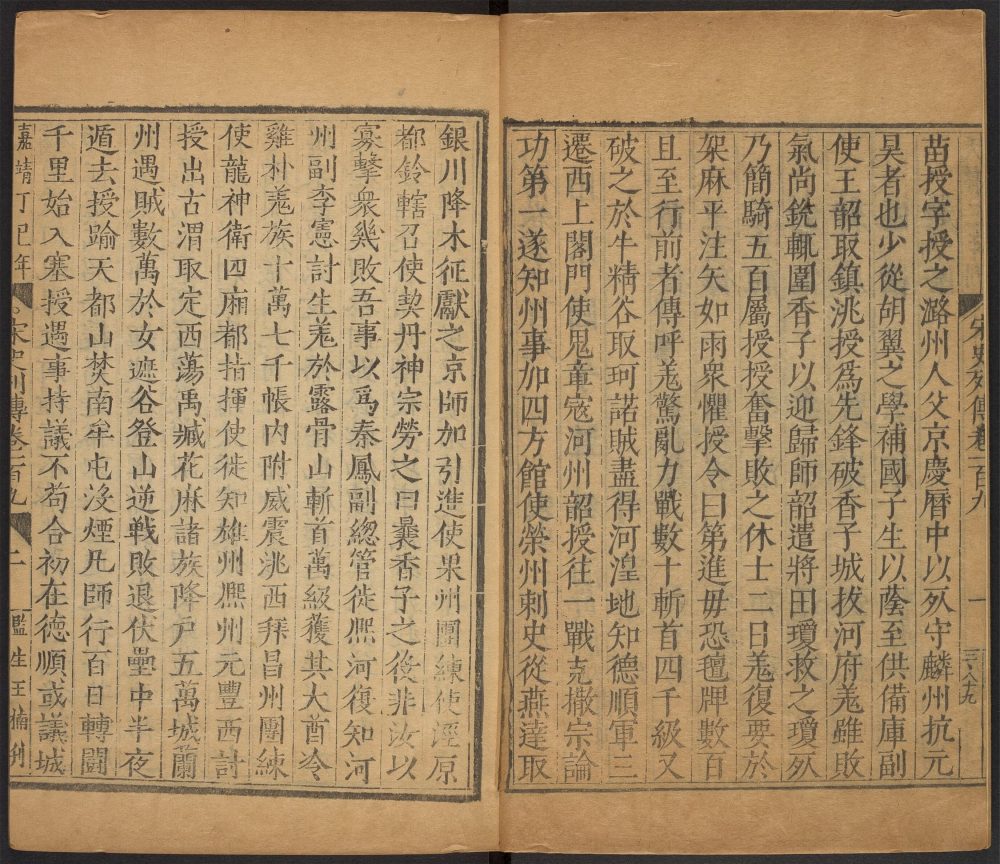 宋史列傳卷一百九 一 三八九
苗授字授之潞州人父京慶曆中以死守麟州抗元
昊者也少從胡翼之學補國子生以䕃至供備庫副
使王韶取鎮洮授爲先鋒破香子城拔河府羌雖敗
氣尚銳輒圍香子以迎歸師韶遣將田瓊救之瓊死
乃簡騎五百屬授授奮擊敗之休士二日羌復要於
架麻平注矢如雨衆懼授令曰第進毋恐氊牌數百
且至行前者傳呼羌驚亂力戰數十斬首四千級又
破之於牛精谷取珂諾賊盡得河湟地知德順軍三
遷西上閤門使鬼章寇河州韶授往一戰克撒宗論
功第一遂知州事加四方館使榮州刺史從燕達取
銀川降木征獻之京師加引進使果州團練使涇原
都鈐轄召使契丹神宗勞之曰曩香子之後非汝以
寡擊衆幾敗吾事以爲秦鳳副總管徙熈河復知河
州副李憲討生羌於露骨山斬首萬級獲其大酋冷
雞朴羌族十萬七千帳內附威震洮西拜昌州團練
使龍神衛四廂都指揮使徙知雄州熈州元豐西討
授出古渭取定西蕩禹臧花麻諸族降户五萬城蘭
州遇賊數萬於女遮谷登山逆戰敗退伏壘中半夜
遁去授踰天都山焚南牟屯沒煙凡師行百日轉鬭
千里始入塞授遇事持議不苟合初在德順或議城
嘉靖丁巳年 宋史列傳卷百九 二 監生王楠刋